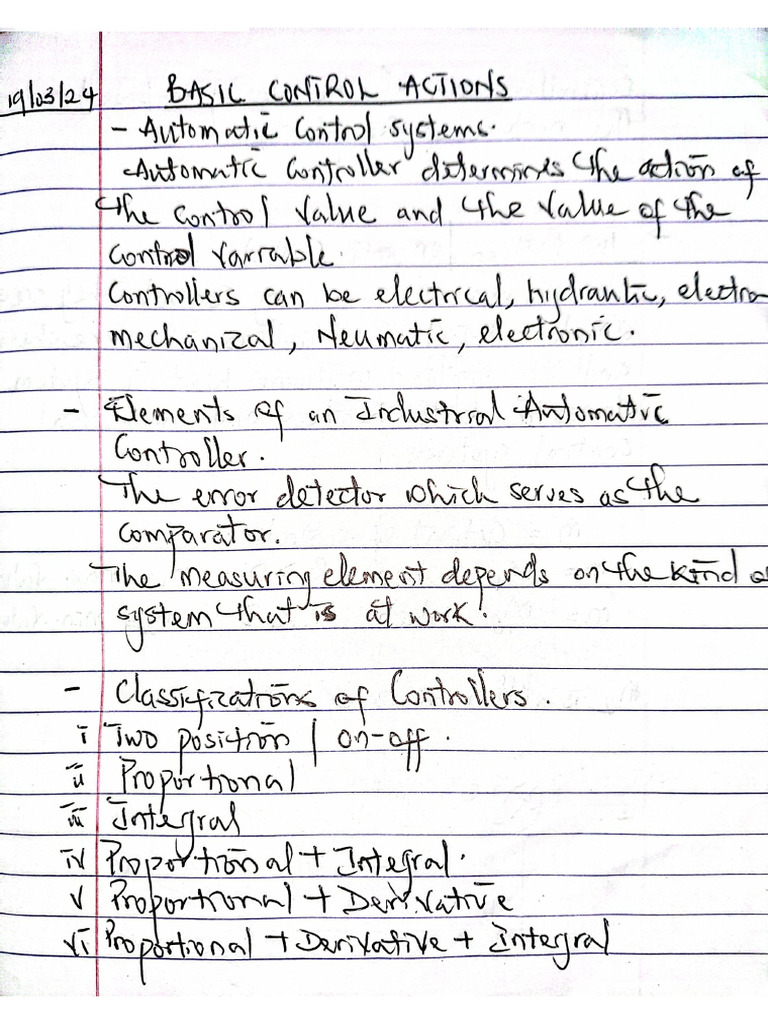 19/03/24 BASIC CONTROL ACTIONS
- Automatic Control systems.
Automatic Controller determines the action of
the control Value and the Value of the
Control Varrable.
Controllers can be electrical, hydrautic, electro
mechanical, Neumatic, electronic.
- Elements of an Industrial Automatic
Controller.
The error detector which serves as the
comparator.
The measuring element depends on the kind of
system that is at work.
- Classifications of Controllers.
i Two position / on-off.
ii Proportional
iii Integral
iv Proportional + Integral.
v Proportional + Derivative
vi Proportional + Derivative + Integral